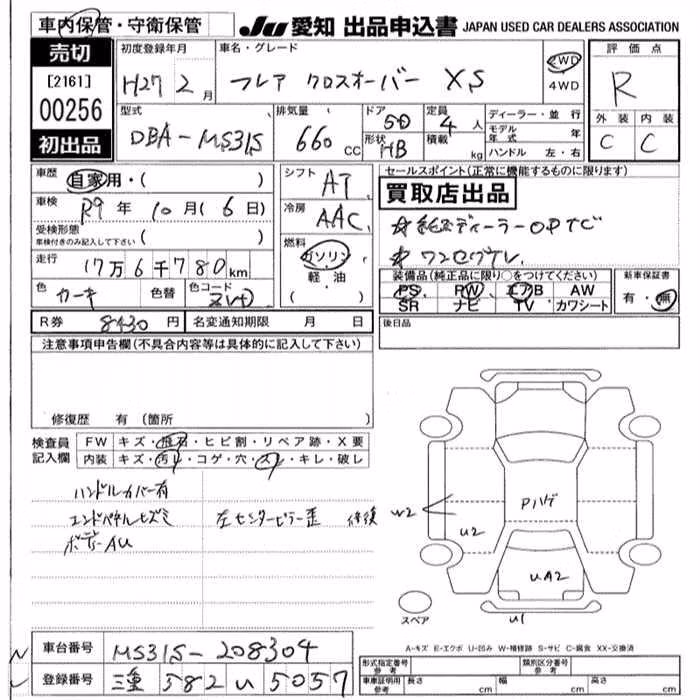 車内保管・守衛保管
JU 愛知 出品申込書 JAPAN USED CAR DEALERS ASSOCIATION
売切
[2161]
00256
初出品
初度登録年月
H27 2月
車名・グレード
フレア クロスオーバー XS
2WD
4WD
評価点
R
外装 内装
C C
型式
DBA-MS31S
排気量
660 cc
ドア
5D
形状
HB
定員
4人
積載
kg
ディーラー・並行
モデル年式 年
ハンドル 左・右
車歴
自家用・( )
車検
R9年 10月(6日)
受検形態
車検付きのみ記入して下さい ( )
走行
17万6千780km
色
カーキ
色替
色コード
ZVD
シフト
AT
冷房
AAC
燃料
ガソリン
軽・油
( )
セールスポイント(正常に機能するものに限ります)
買取店出品
ワンセグTV.
装備品(純正品に限り○をつけてください)
PS PW エアB AW
SR ナビ TV カワシート
新車保証書
有・無
R券 8430円
名変通知期限 月 日
後日品
注意事項申告欄(不具合内容等は具体的に記入して下さい)
修復歴 有(箇所 )
検査員記入欄
FW キズ・飛石・ヒビ割・リペア跡・X要
内装 キズ・汚レ・コゲ・穴・スレ・キレ・破レ
ハンドルカバー有
エンドパネルヒズミ 左センターピラー歪 修復
ボデーAU
W2
U2
Pハゲ
UA2
U1
スペア
A-キズ E-エクボ U-凹み W-補修跡 S-サビ C-腐食 XX-交換済
車台番号 MS31S-208304
登録番号 三重 582 U 5057
形式指定番号 参考
類別区分番号 参考
車庫証明用 参考 長さ cm 幅 cm 高さ cm